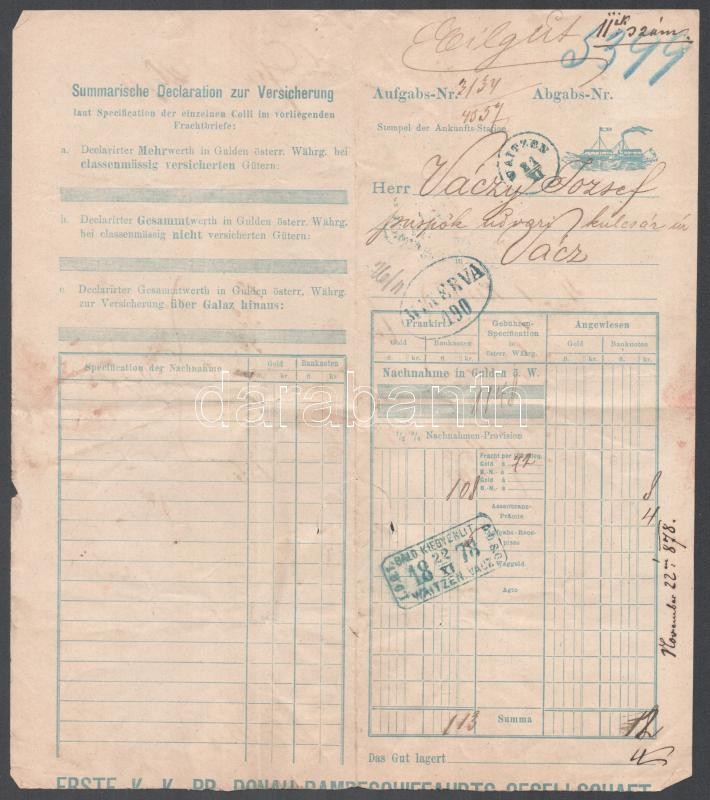 Eilgut
11ik szám.
5399
Summarische Declaration zur Versicherung
laut Specification der einzelnen Colli im vorliegenden
Frachtbriefe:
a. Declarirter Mehrwerth in Gulden österr. Währg. bei
classenmässig versicherten Gütern:
b. Declarirter Gesammtwerth in Gulden österr. Währg.
bei classenmässig nicht versicherten Gütern:
c. Declarirter Gesammtwerth in Gulden österr. Währg.
zur Versicherung über Galaz hinaus:
Specification der Nachnahme
Gold
Banknoten
fl.
kr.
fl.
kr.
Aufgabs-Nr. 3134
Abgabs-Nr.
4557
Stempel der Ankunfts-Station
WAITZEN
21
XI
Herr Váczy József
püspök udvari kulcsár úr
in
Vácz
MINERVA
190
Frankirt
Gebühren-
Specification
in
österr. Währg.
Angewiesen
Gold
Banknoten
Gold
Banknoten
fl.
kr.
fl.
kr.
fl.
kr.
fl.
kr.
Nachnahme in Gulden ö. W.
1/2 % Nachnahmen-Provision
Gold à
B.-N. à
Gold à
B.-N. à
108
8
Assecuranz-
Prämie
4
Aufgabs-Rece-
pisse
Waggeld
Agio
BALD KIEGYENLIT
18 22/XI 78
WAITZEN VACZ
November 22én 878.
113
Summa
12
4
Das Gut lagert
ERSTE K. K. PR. DONAU-DAMPFSCHIFFFAHRTS-GESELLSCHAFT
darabanth